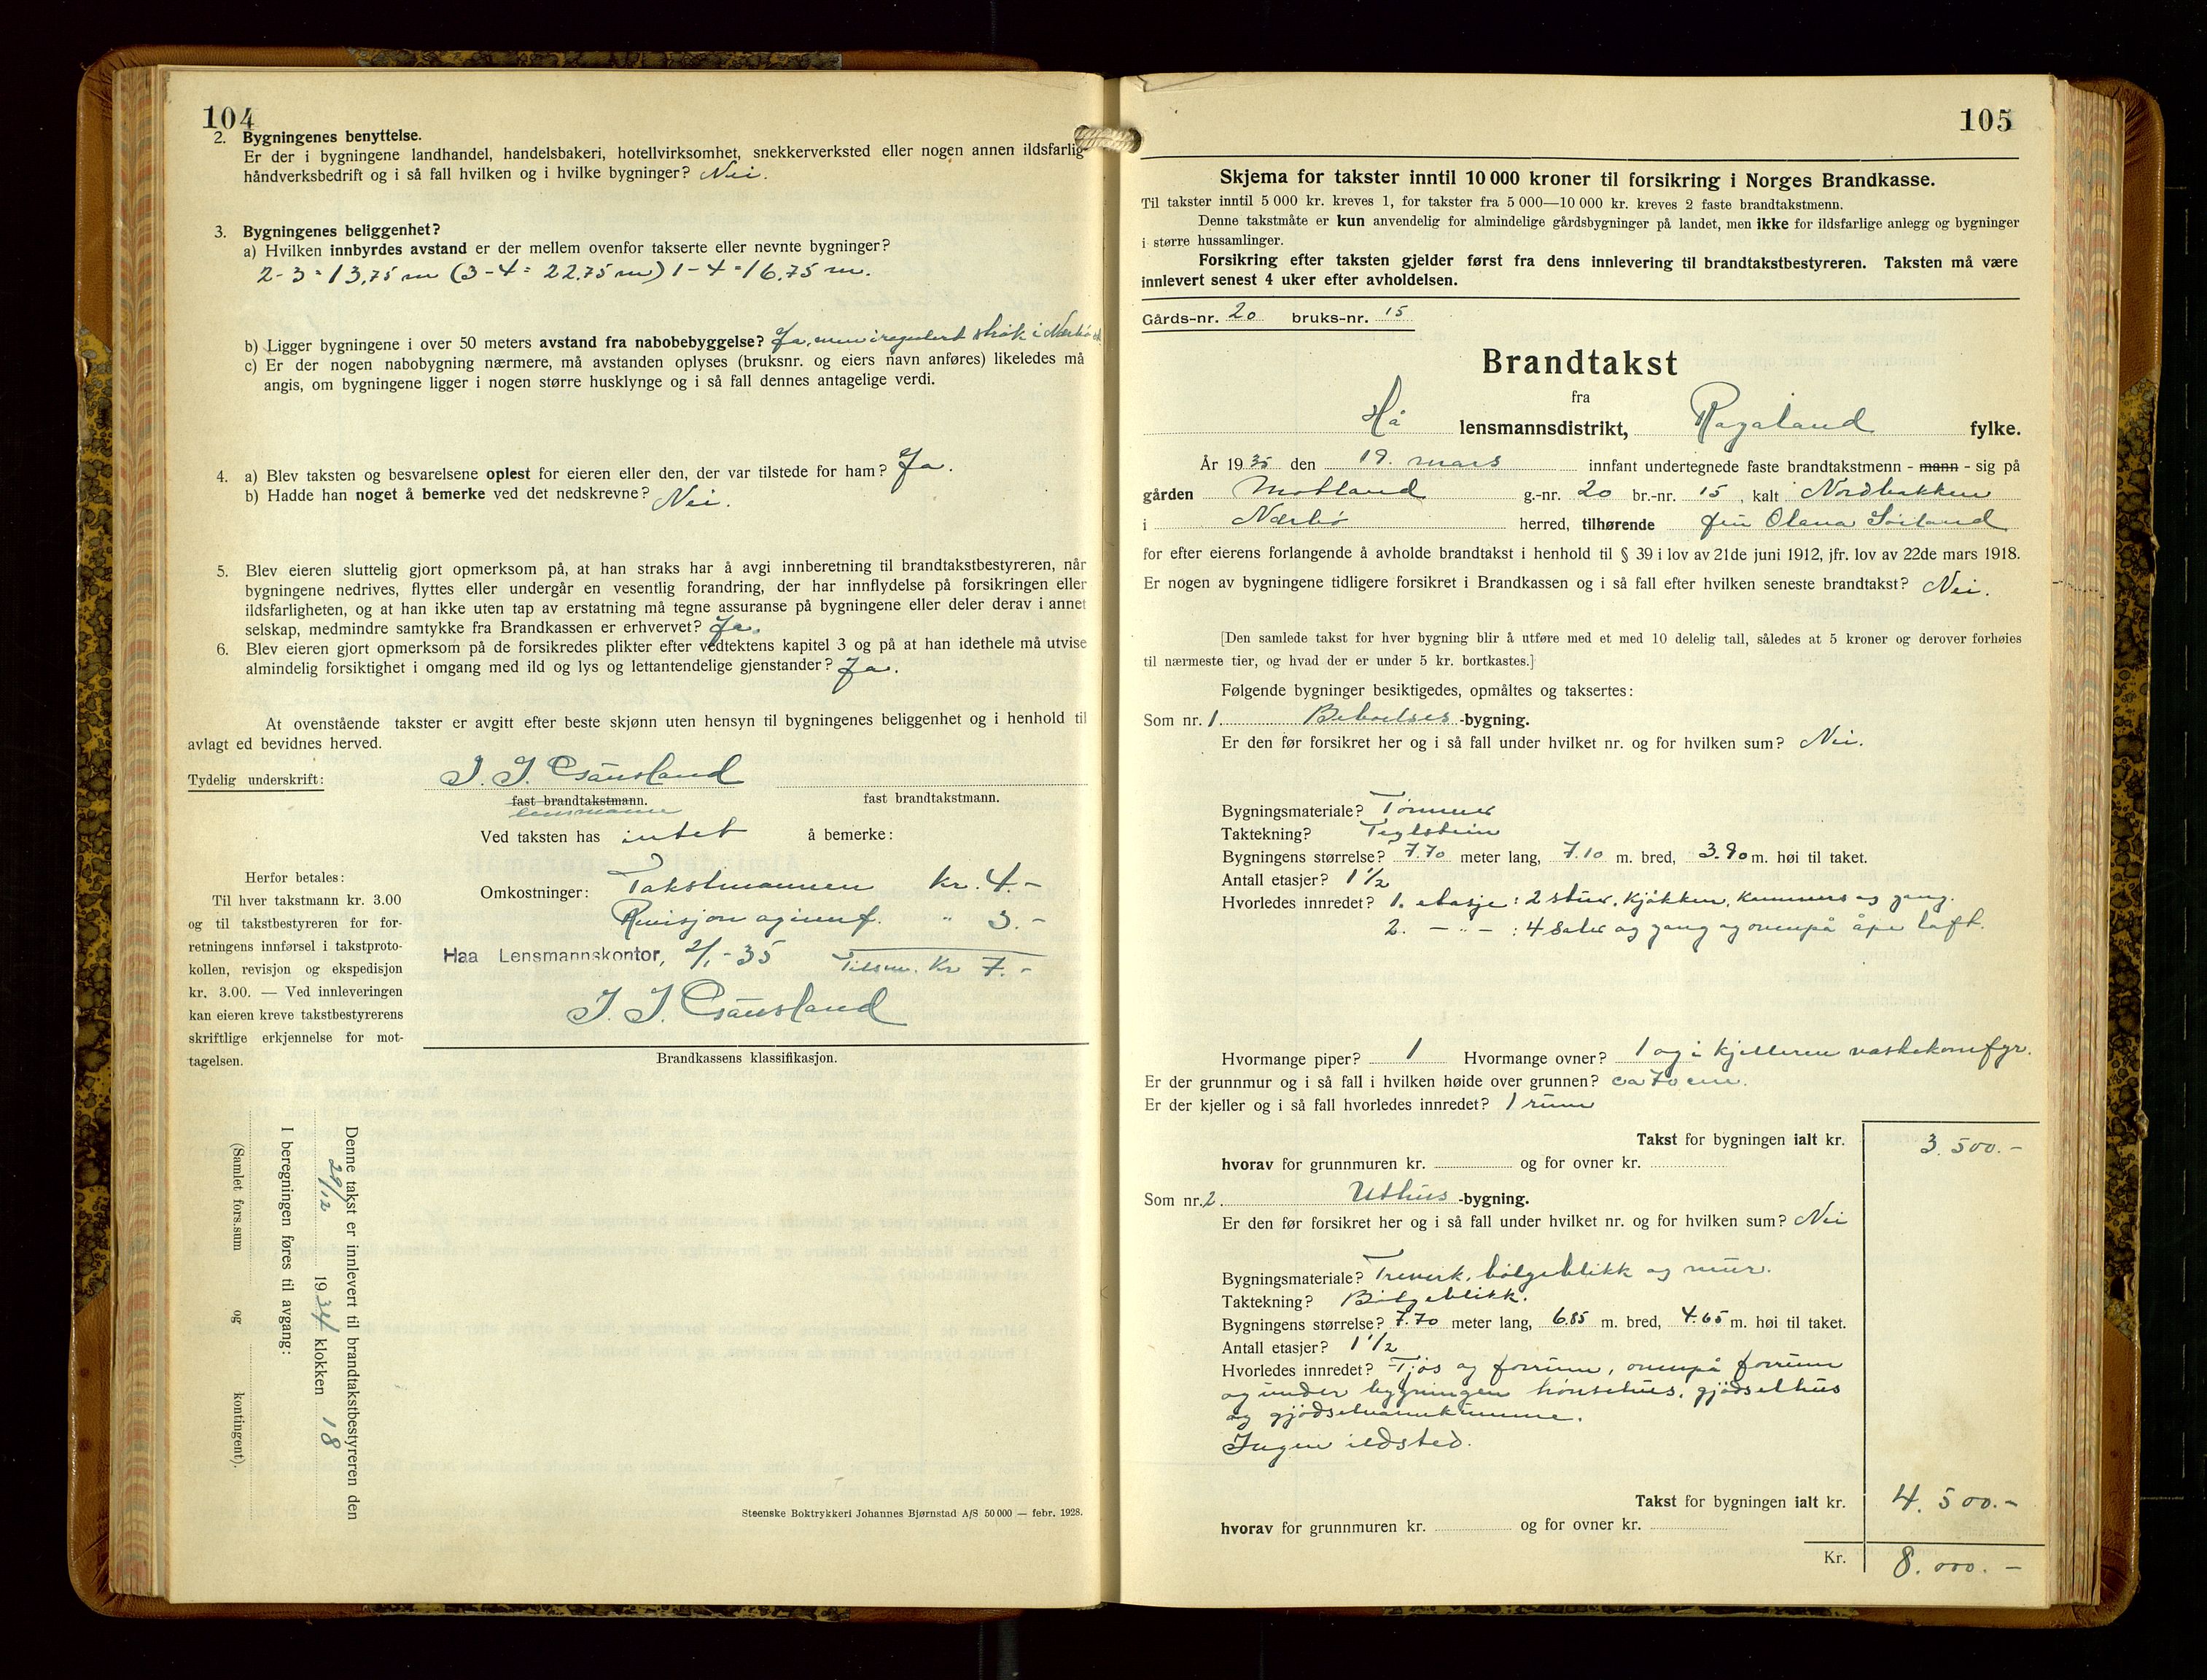 104
2. Bygningenes benyttelse.
Er der i bygningene landhandel, handelsbakeri, hotellvirksomhet, snekkerverksted eller nogen annen ildsfarlig
håndverksbedrift og i så fall hvilken og i hvilke bygninger? Nei.
3. Bygningenes beliggenhet?
a) Hvilken innbyrdes avstand er der mellem ovenfor takserte eller nevnte bygninger?
2-3 = 13,75 m (3-4 = 22,75 m) 1-4 = 16,75 m.
b) Ligger bygningene i over 50 meters avstand fra nabobebyggelse? Ja, men i regulert strøk i Nærbø
c) Er der nogen nabobygning nærmere, må avstanden oplyses (bruksnr. og eiers navn anføres) likeledes må
angis, om bygningene ligger i nogen større husklynge og i så fall dennes antagelige verdi.
4. a) Blev taksten og besvarelsene oplest for eieren eller den, der var tilstede for ham? Ja.
b) Hadde han noget å bemerke ved det nedskrevne? Nei.
5. Blev eieren sluttelig gjort opmerksom på, at han straks har å avgi innberetning til brandtakstbestyreren, når
bygningene nedrives, flyttes eller undergår en vesentlig forandring, der har innflydelse på forsikringen eller
ildsfarligheten, og at han ikke uten tap av erstatning må tegne assuranse på bygningene eller deler derav i annet
selskap, medmindre samtykke fra Brandkassen er erhvervet? Ja.
6. Blev eieren gjort opmerksom på de forsikredes plikter efter vedtektens kapitel 3 og på at han idethele må utvise
almindelig forsiktighet i omgang med ild og lys og lettantendelige gjenstander? Ja.
At ovenstående takster er avgitt efter beste skjønn uten hensyn til bygningenes beliggenhet og i henhold til
avlagt ed bevidnes herved.
Tydelig underskrift: J. J. Gausland
fast brandtakstmann. fast brandtakstmann.
lensmann
Ved taksten has intet å bemerke:
Omkostninger: Takstmannen kr. 4.-
Revisjon og innf. " 3.-
Haa Lensmannskontor, 2/1-35 Tilsm. Kr 7.-
J. J. Gausland
Herfor betales:
Til hver takstmann kr. 3.00
og til takstbestyreren for for-
retningens innførsel i takstproto-
kollen, revisjon og ekspedisjon
kr. 3.00. — Ved innleveringen
kan eieren kreve takstbestyrerens
skriftlige erkjennelse for mot-
tagelsen.
Brandkassens klassifikasjon.
Denne takst er innlevert til brandtakstbestyreren den
29/12 1934 klokken 18
I beregningen føres til avgang:
(Samlet fors.sum og kontingent).
Steenske Boktrykkeri Johannes Bjørnstad A/S 50 000 — febr. 1928.
105
Skjema for takster inntil 10 000 kroner til forsikring i Norges Brandkasse.
Til takster inntil 5 000 kr. kreves 1, for takster fra 5 000—10 000 kr. kreves 2 faste brandtakstmenn.
Denne takstmåte er kun anvendelig for almindelige gårdsbygninger på landet, men ikke for ildsfarlige anlegg og bygninger
i større hussamlinger.
Forsikring efter taksten gjelder først fra dens innlevering til brandtakstbestyreren. Taksten må være
innlevert senest 4 uker efter avholdelsen.
Gårds-nr. 20 bruks-nr. 15
Brandtakst
fra
Hå lensmannsdistrikt, Rogaland fylke.
År 1935 den 19. mars innfant undertegnede faste brandtakstmenn - mann - sig på
gården Motland g.-nr. 20 br.-nr. 15, kalt Nordbakken
i Nærbø herred, tilhørende fru Olava Söiland
for efter eierens forlangende å avholde brandtakst i henhold til § 39 i lov av 21de juni 1912, jfr. lov av 22de mars 1918.
Er nogen av bygningene tidligere forsikret i Brandkassen og i så fall efter hvilken seneste brandtakst? Nei.
[Den samlede takst for hver bygning blir å utføre med et med 10 delelig tall, således at 5 kroner og derover forhøies
til nærmeste tier, og hvad der er under 5 kr. bortkastes.]
Følgende bygninger besiktigedes, opmåltes og taksertes:
Som nr. 1. Beboelses-bygning.
Er den før forsikret her og i så fall under hvilket nr. og for hvilken sum? Nei.
Bygningsmateriale? Tømmer
Taktekning? Teglstein
Bygningens størrelse? 7.70 meter lang, 7.10 m. bred, 3.90 m. høi til taket.
Antall etasjer? 1 1/2
Hvorledes innredet? 1. etasje: 2 stuer, kjøkken, kammers og gang.
2. - " - : 4 saler og gang og ovenpå åpe loft.
Hvormange piper? 1 Hvormange ovner? 1 og i kjelleren vaskekomfyr.
Er der grunnmur og i så fall i hvilken høide over grunnen? ca 70 cm.
Er der kjeller og i så fall hvorledes innredet? 1 rum
Takst for bygningen ialt kr. 3.500.-
hvorav for grunnmuren kr. og for ovner kr.
Som nr. 2. Uthus-bygning.
Er den før forsikret her og i så fall under hvilket nr. og for hvilken sum? Nei
Bygningsmateriale? Treverk, bølgeblikk og mur.
Taktekning? Bølgeblikk.
Bygningens størrelse? 7.70 meter lang, 6.85 m. bred, 4.65 m. høi til taket.
Antall etasjer? 1 1/2
Hvorledes innredet? Fjøs og forrum, ovenpå forrum
og under bygningen hønsehus, gjødselhus
og gjødselvannkumme.
Ingen ildsted.
Takst for bygningen ialt kr. 4.500.-
hvorav for grunnmuren kr. og for ovner kr.
Kr. 8.000.-